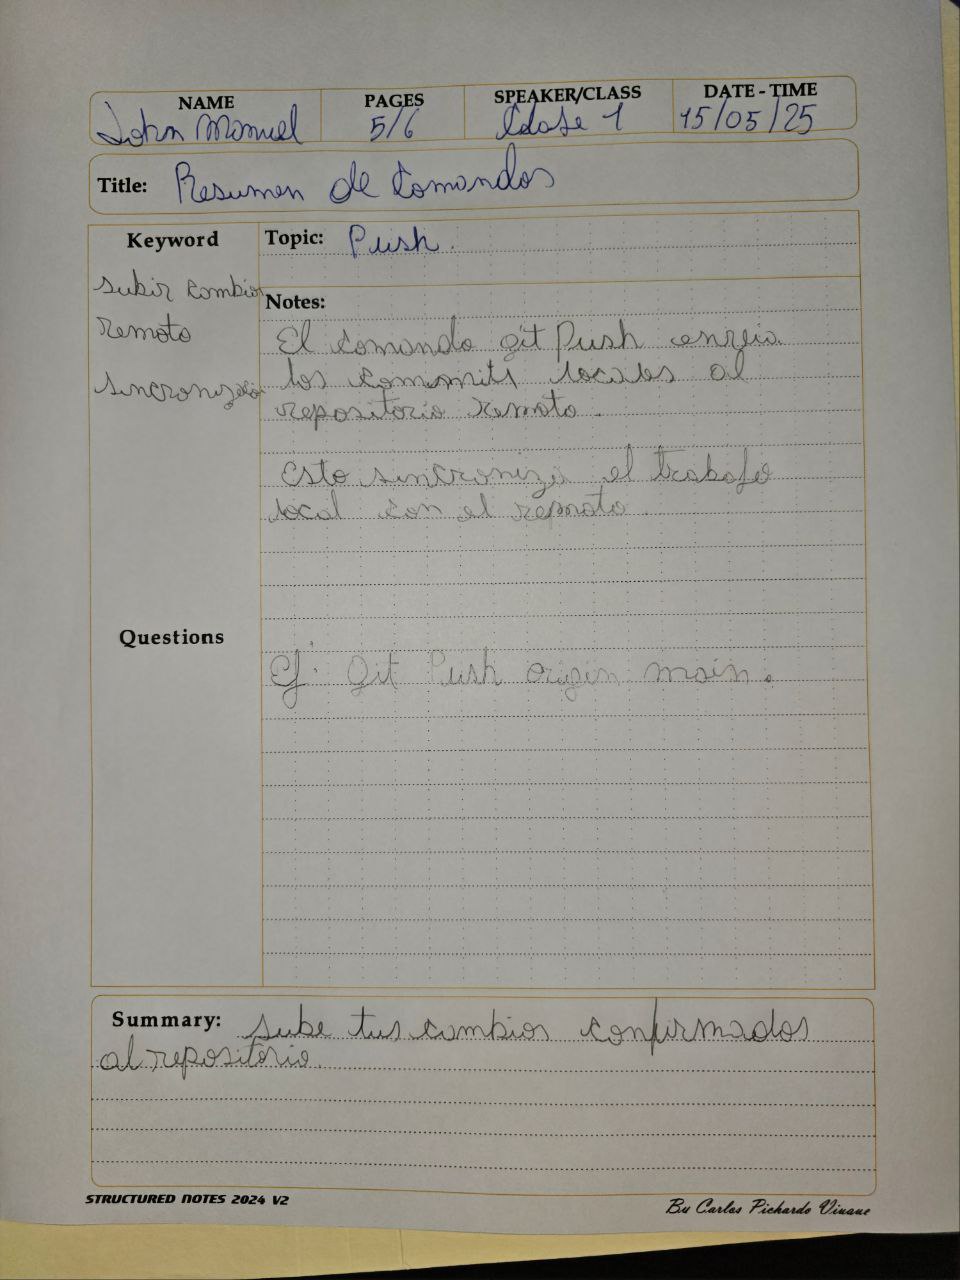 NAME PAGES SPEAKER/CLASS DATE - TIME
John Manuel 5/6 Clase 1 15/05/25
Title: Resumen de Comandos
Keyword
Topic: Push.
subir cambios
remoto
sincronización
Notes:
El comando git Push envia
los commits locales al
repositorio remoto.
Esto sincroniza el trabajo
local con el remoto.
Questions
Ej: Git Push origin main.
Summary: sube tus cambios confirmados
al repositorio.
STRUCTURED NOTES 2024 V2
By Carlos Pichardo Viuque